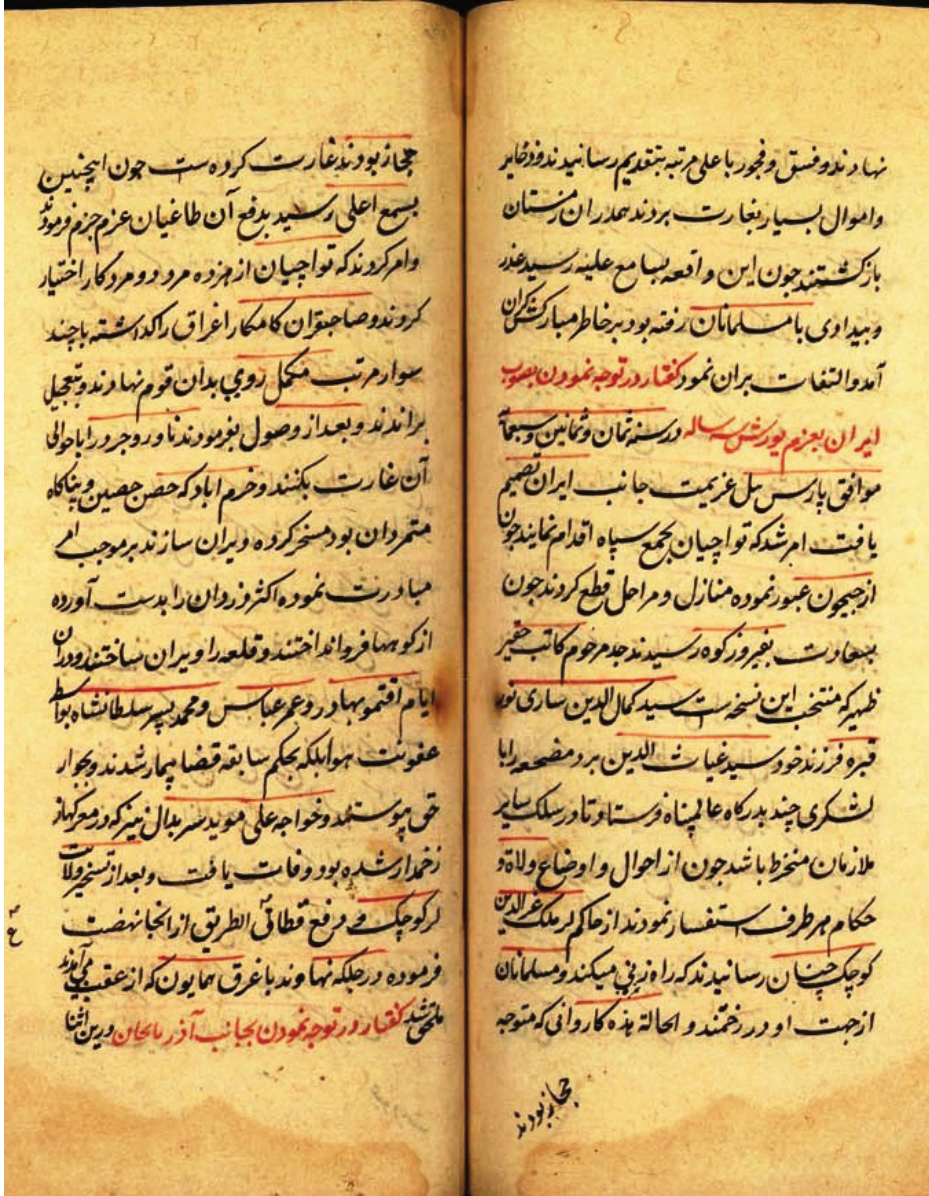 نهادند و فسق و فجور باعلی مرتبه بتقدیم رسانیدند و ذخایر
و اموال بسیار بغارت بردند همدران زمستان
بازگشتند جون این واقعه بسامع علیه رسید عذر
و بیدادی با مسلمانان رفته بود بر خاطر مبارکش کران
آمد و التفات بران نمود کفتار در توجه نمودن بصوب
ایران بعزم یورش سه ساله در سنه ثمان و ثمانین و سبعمأ
موافق پارس ئیل عزیمت جانب ایران تصمیم
یافت امر شد که تواچیان بجمع سپاه اقدام نمایند جون
از جیحون عبور نموده منازل و مراحل قطع کردند جون
بسعادت بفیروزکوه رسیدند جد مرحوم کاتب حقیر
ظهیر که منتخب این نسخه است سید کمال الدین ساری نور
قبره فرزند خود سید غیاث الدین برد مضجعه رابا
لشکری چند بدرکاه عالمپناه فرستاد تا در سلک سایر
ملازمان منخرط باشد جون از احوال و اوضاع ولاة و
حکام هر طرف استفسار نمودند از حاکم لر ملک عزالدین
کوچک چنان رسانیدند که راه زنی میکند و مسلمانان
از جهت او در زحمتند و الحالة هذه کاروانی که متوجه
حجاز بودند
حجاز بودند غارت کرده ست جون اینچنین
بسمع اعلی رسید بدفع آن طاغیان عزم جزم فرمودند
و امر کردند که تواچیان از هر ده مرد دو مرد کار اختیار
کردند و صاحبقران کامکار اغراق را کذاشته باچند
سوار مرتب مکمل روی بدان قوم نهادند و بتعجیل
براندند و بعد از وصول بفرمودند تا وروجرد را با حوالی
آن غارت بکنند و خرم اباد که حصن حصین و پناکاه
متمردان بود مسخر کرده ویران سازند بر موجب امر
مبادرت نموده اکثر دزدان را بدست آورده
از کوهها فرو انداختند و قلعه را ویران ساختند و دران
ایام اقتمور بهادر و عمر عباس و محمد پسر سلطانشاه بواسط
عفونت هوا بلکه بحکم سابقه قضا بیمار شدند و بجوار
حق پیوستند و خواجه علی موید سربدال نیز که در معرکه از
زخمدار شده بود وفات یافت و بعد از تسخیر ولایت
لر کوچک و رفع قطاع الطریق از انجا نهضت
فرموده در جلکه نهاوند با غرق همایون که از عقب می آمدند
ملحق شد کفتار در توجه نمودن بجانب آذربایجان درین اثنا